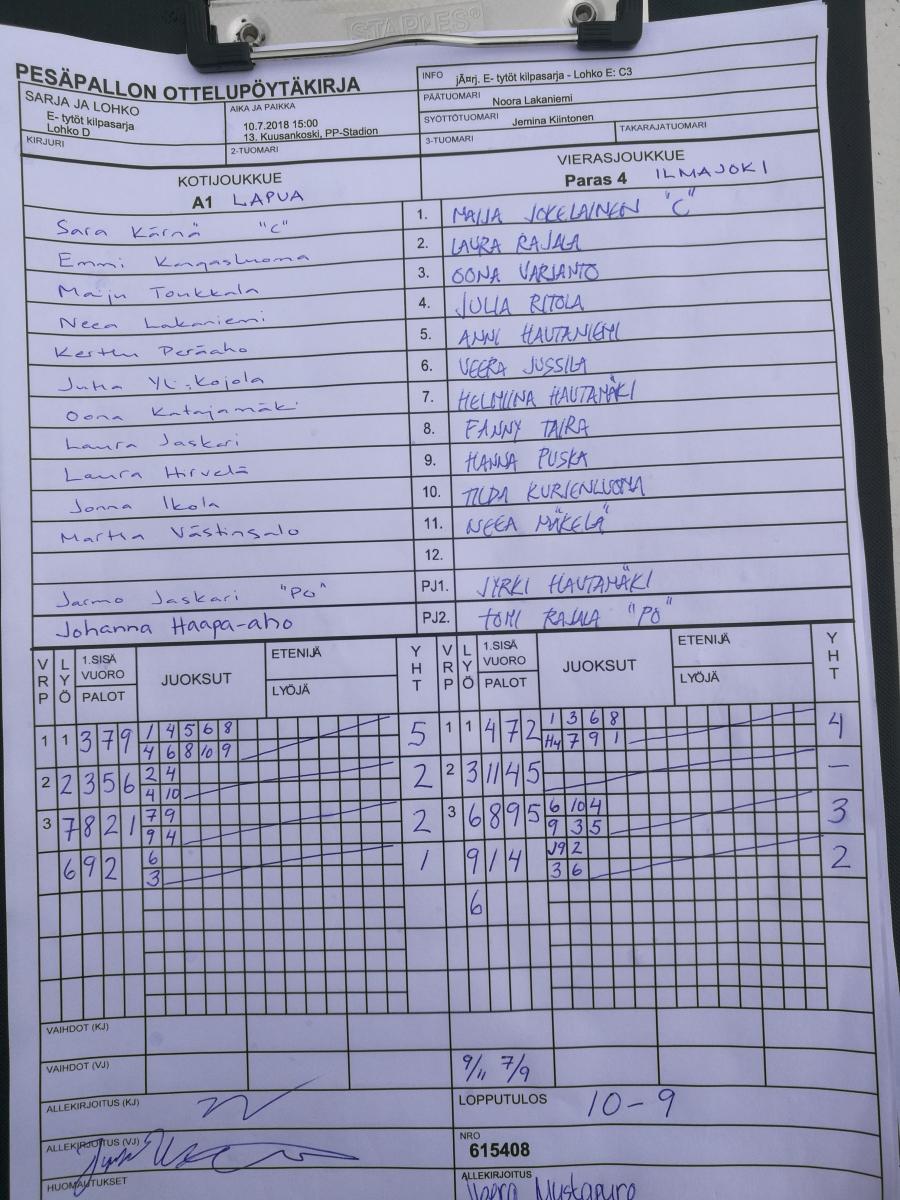 STAPLES
PESÄPALLON OTTELUPÖYTÄKIRJA
SARJA JA LOHKO
E- tytöt kilpasarja
Lohko D
AIKA JA PAIKKA
10.7.2018 15:00
13. Kuusankoski, PP-Stadion
INFO jÄ¤rj. E- tytöt kilpasarja - Lohko E: C3
PÄÄTUOMARI Noora Lakaniemi
SYÖTTÖTUOMARI Jemina Kiintonen
KIRJURI 2-TUOMARI 3-TUOMARI TAKARAJATUOMARI
KOTIJOUKKUE VIERASJOUKKUE
A1 LAPUA Paras 4 ILMAJOKI
Sara Kärnä "C" 1. MAIJA JOKELAINEN "C"
Emmi Kangasluoma 2. LAURA RAJALA
Maiju Toukkala 3. OONA VARJANTO
Neea Lakaniemi 4. JULIA RITOLA
Kerttu Peräaho 5. ANNI HAUTANIEMI
Jutta Yli-Kojola 6. VEERA JUSSILA
Oona Katajamäki 7. HELMIINA HAUTAMÄKI
Laura Jaskari 8. FANNY TAIRA
Laura Hirvelä 9. HANNA PUSKA
Jonna Ikola 10. TILDA KURJENLUOMA
Martta Västinsalo 11. NEEA MÄKELÄ
12.
Jarmo Jaskari "PO" PJ1. JYRKI HAUTAMÄKI
Johanna Haapa-aho PJ2. TOMI RAJALA "PO"
VRP LYÖ 1.SISÄ VUORO PALOT JUOKSUT ETENIJÄ LYÖJÄ YHT VRP LYÖ 1.SISÄ VUORO PALOT JUOKSUT ETENIJÄ LYÖJÄ YHT
1 1 3 7 9 1 4 5 6 8 5 1 1 4 7 2 1 3 6 8 4
4 6 8 10 9 H4 7 9 1
2 2 3 5 6 2 4 2 2 3 11 4 5 –
4 10
3 7 8 2 1 7 9 2 3 6 8 9 5 6 10 4 3
9 4 9 3 5
6 9 2 6 1 9 1 4 2 2
3 3 6
6
VAIHDOT (KJ)
VAIHDOT (VJ) 9/11 7/9
ALLEKIRJOITUS (KJ) LOPPUTULOS 10-9
ALLEKIRJOITUS (VJ) NRO
615408
HUOMAUTUKSET ALLEKIRJOITUS
Mustapuro